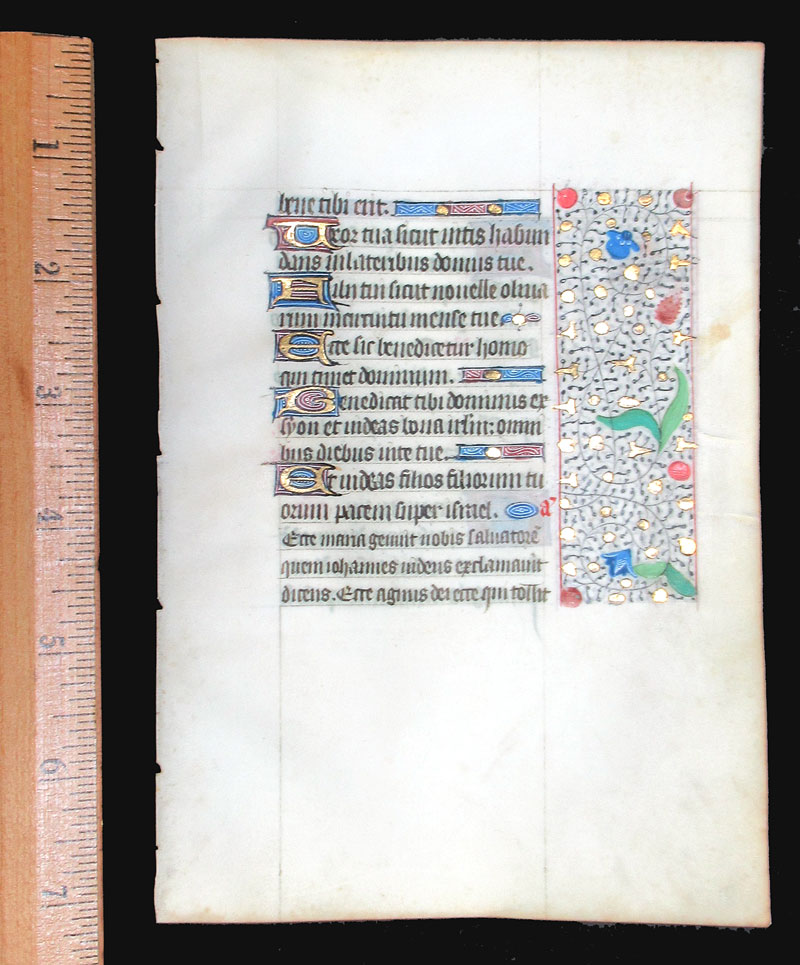 bene tibi erit.
Uxor tua sicut vitis habun
dans in lateribus domus tue.
Filii tui sicut novelle oliva
rum in circuitu mense tue
Ecce sic benedicetur homo
qui timet dominum.
Benedicat tibi dominus ex
syon et videas bona irlm: omni
bus diebus vite tue.
Et videas filios filiorum tu
orum pacem super israel. a
Ecce maria genuit nobis salvatorē
quem iohannes videns exclamavit
dicens. Ecce agnus dei ecce qui tollit
1
2
3
4
5
6
7